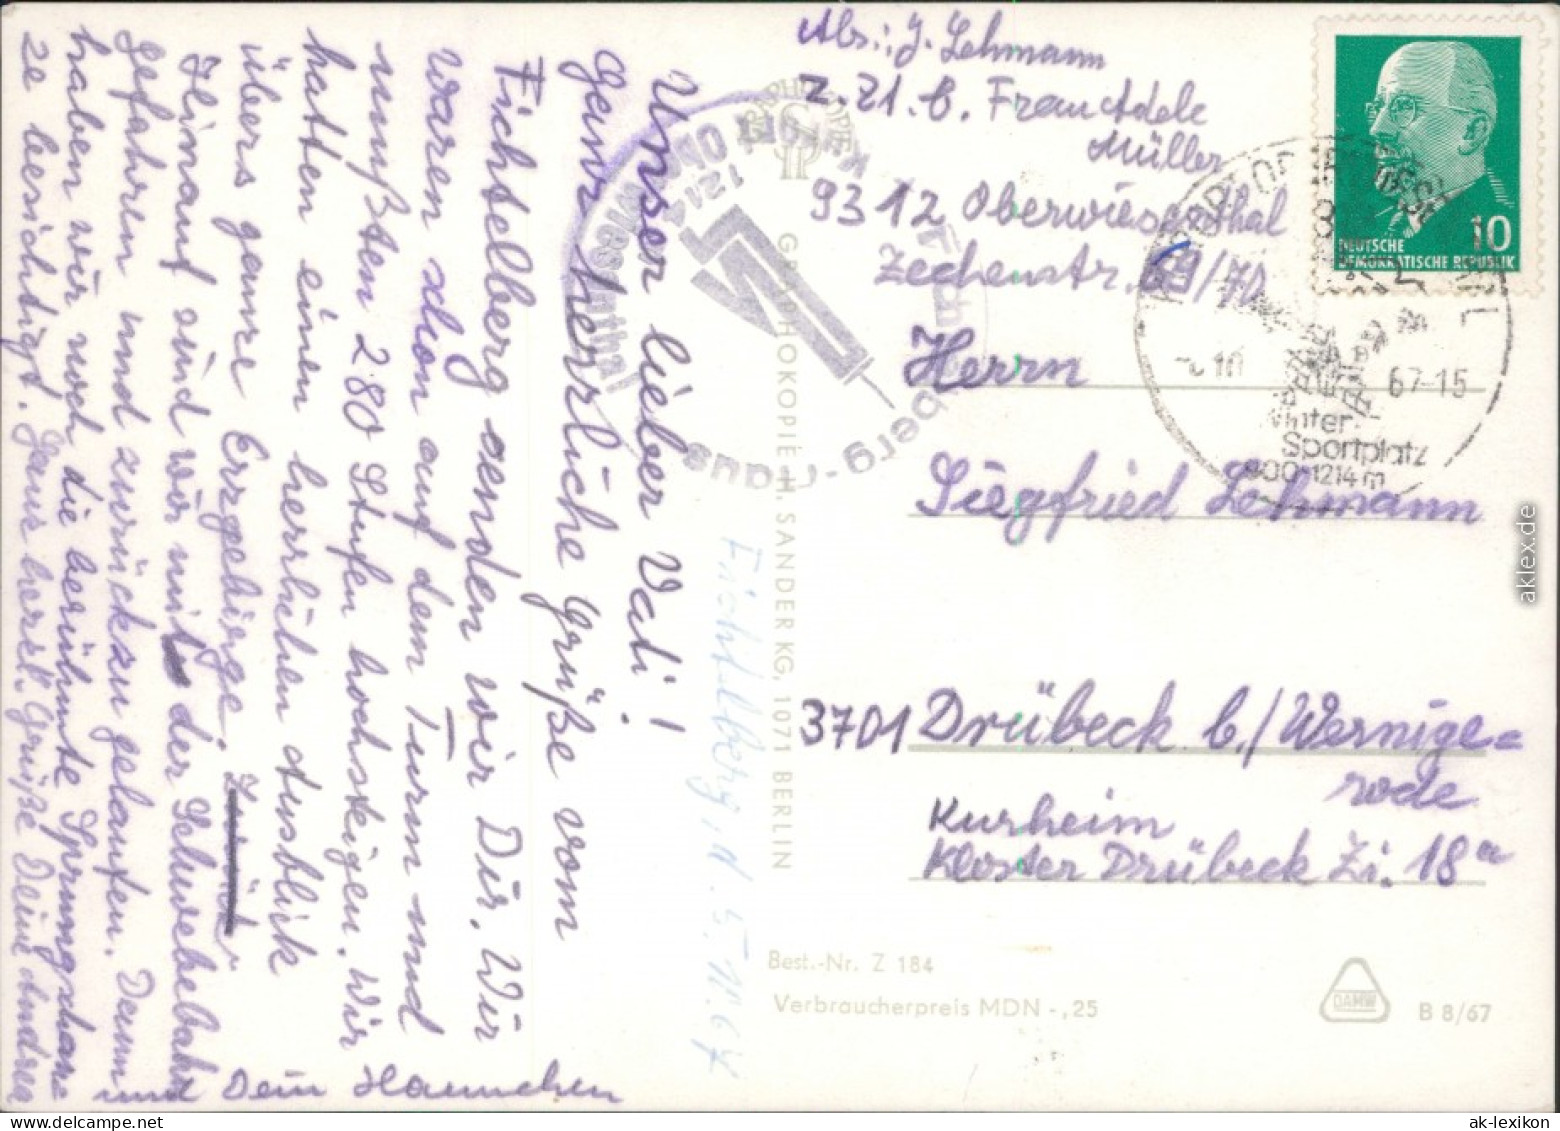 Abs.: J. Lehmann
Z. Zt. b. Frau Adele
Müller
9312 Oberwiesenthal
Zechenstr. 69/70
Herrn
Siegfried Lehmann
3701 Drübeck b./Wernige=
rode
Kurheim
Kloster Drübeck Zi. 18a
Unser lieber Vati!
Ganz herrliche Grüße vom
Fichtelberg senden wir Dir. Wir
waren schon auf dem Turm und
mußten 280 Stufen hochsteigen. Wir
hatten einen herrlichen Ausblick
übers ganze Erzgebirge. Zurück
Hinauf sind wir mit der Schwebebahn
gefahren und zurückzu gelaufen. Dann
haben wir noch die berühmte Sprungschan
ze besichtigt. Ganz herzl. Grüße Deine Andrea
und Dein Hannchen
Fichtelberg, d. 5.10.67
GRAPHOKOPIE H. SANDER KG, 1071 BERLIN
GRAPHOKOPIE
1214
Oberwiesenthal
Fichtelberg-Haus
DEUTSCHE
DEMOKRATISCHE REPUBLIK
10
67-15
Winter-
Sportplatz
900-1214 m
Best.-Nr. Z 184
Verbraucherpreis MDN -,25
DAMW
B 8/67
aklex.de
ak-lexikon